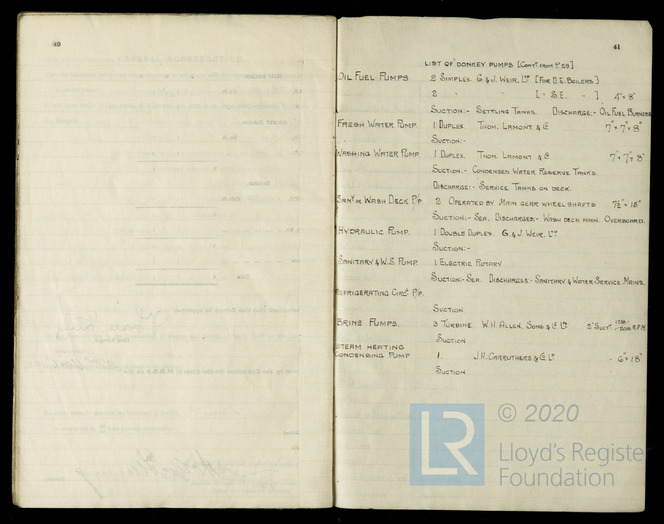 40
41
LIST OF DONKEY PUMPS [CONTD FROM P.29]
OIL FUEL PUMPS 2 SIMPLEX. G. & J. WEIR. LTD [FOR D.E. BOILERS]
2 " " [ " S.E. " ] 4" × 8"
SUCTION:- SETTLING TANKS. DISCHARGE:- OIL FUEL BURNERS
FRESH WATER PUMP. 1 DUPLEX. THOM. LAMONT & Co 7" × 7" × 8"
SUCTION:-
WASHING WATER PUMP. 1 DUPLEX. THOM. LAMONT & Co 7" × 7" × 8"
SUCTION:- CONDENSED WATER RESERVE TANKS.
DISCHARGE:- SERVICE TANKS ON DECK.
SANY OR WASH DECK P/P 2 OPERATED BY MAIN GEAR WHEEL SHAFTS. 7½" × 15"
SUCTION:- SEA. DISCHARGES:- WASH DECK MAIN. OVERBOARD.
HYDRAULIC PUMP. 1 DOUBLE DUPLEX. G. & J. WEIR. LTD
SUCTION:-
SANITARY & W.S. PUMP. 1 ELECTRIC ROTARY
SUCTION:- SEA. DISCHARGES:- SANITARY & WATER SERVICE MAINS.
REFRIGERATING CIRCG P/P.
SUCTION
BRINE PUMPS. 3 TURBINE. W.H. ALLEN, SONS & Co LTD 2" SUCTN. R.P.M.
SUCTION
STEAM HEATING
CONDENSING PUMP 1. J.H. CARRUTHERS & Co LTD 6" × 18"
SUCTION
LR
© 2020
Lloyd's Register
Foundation